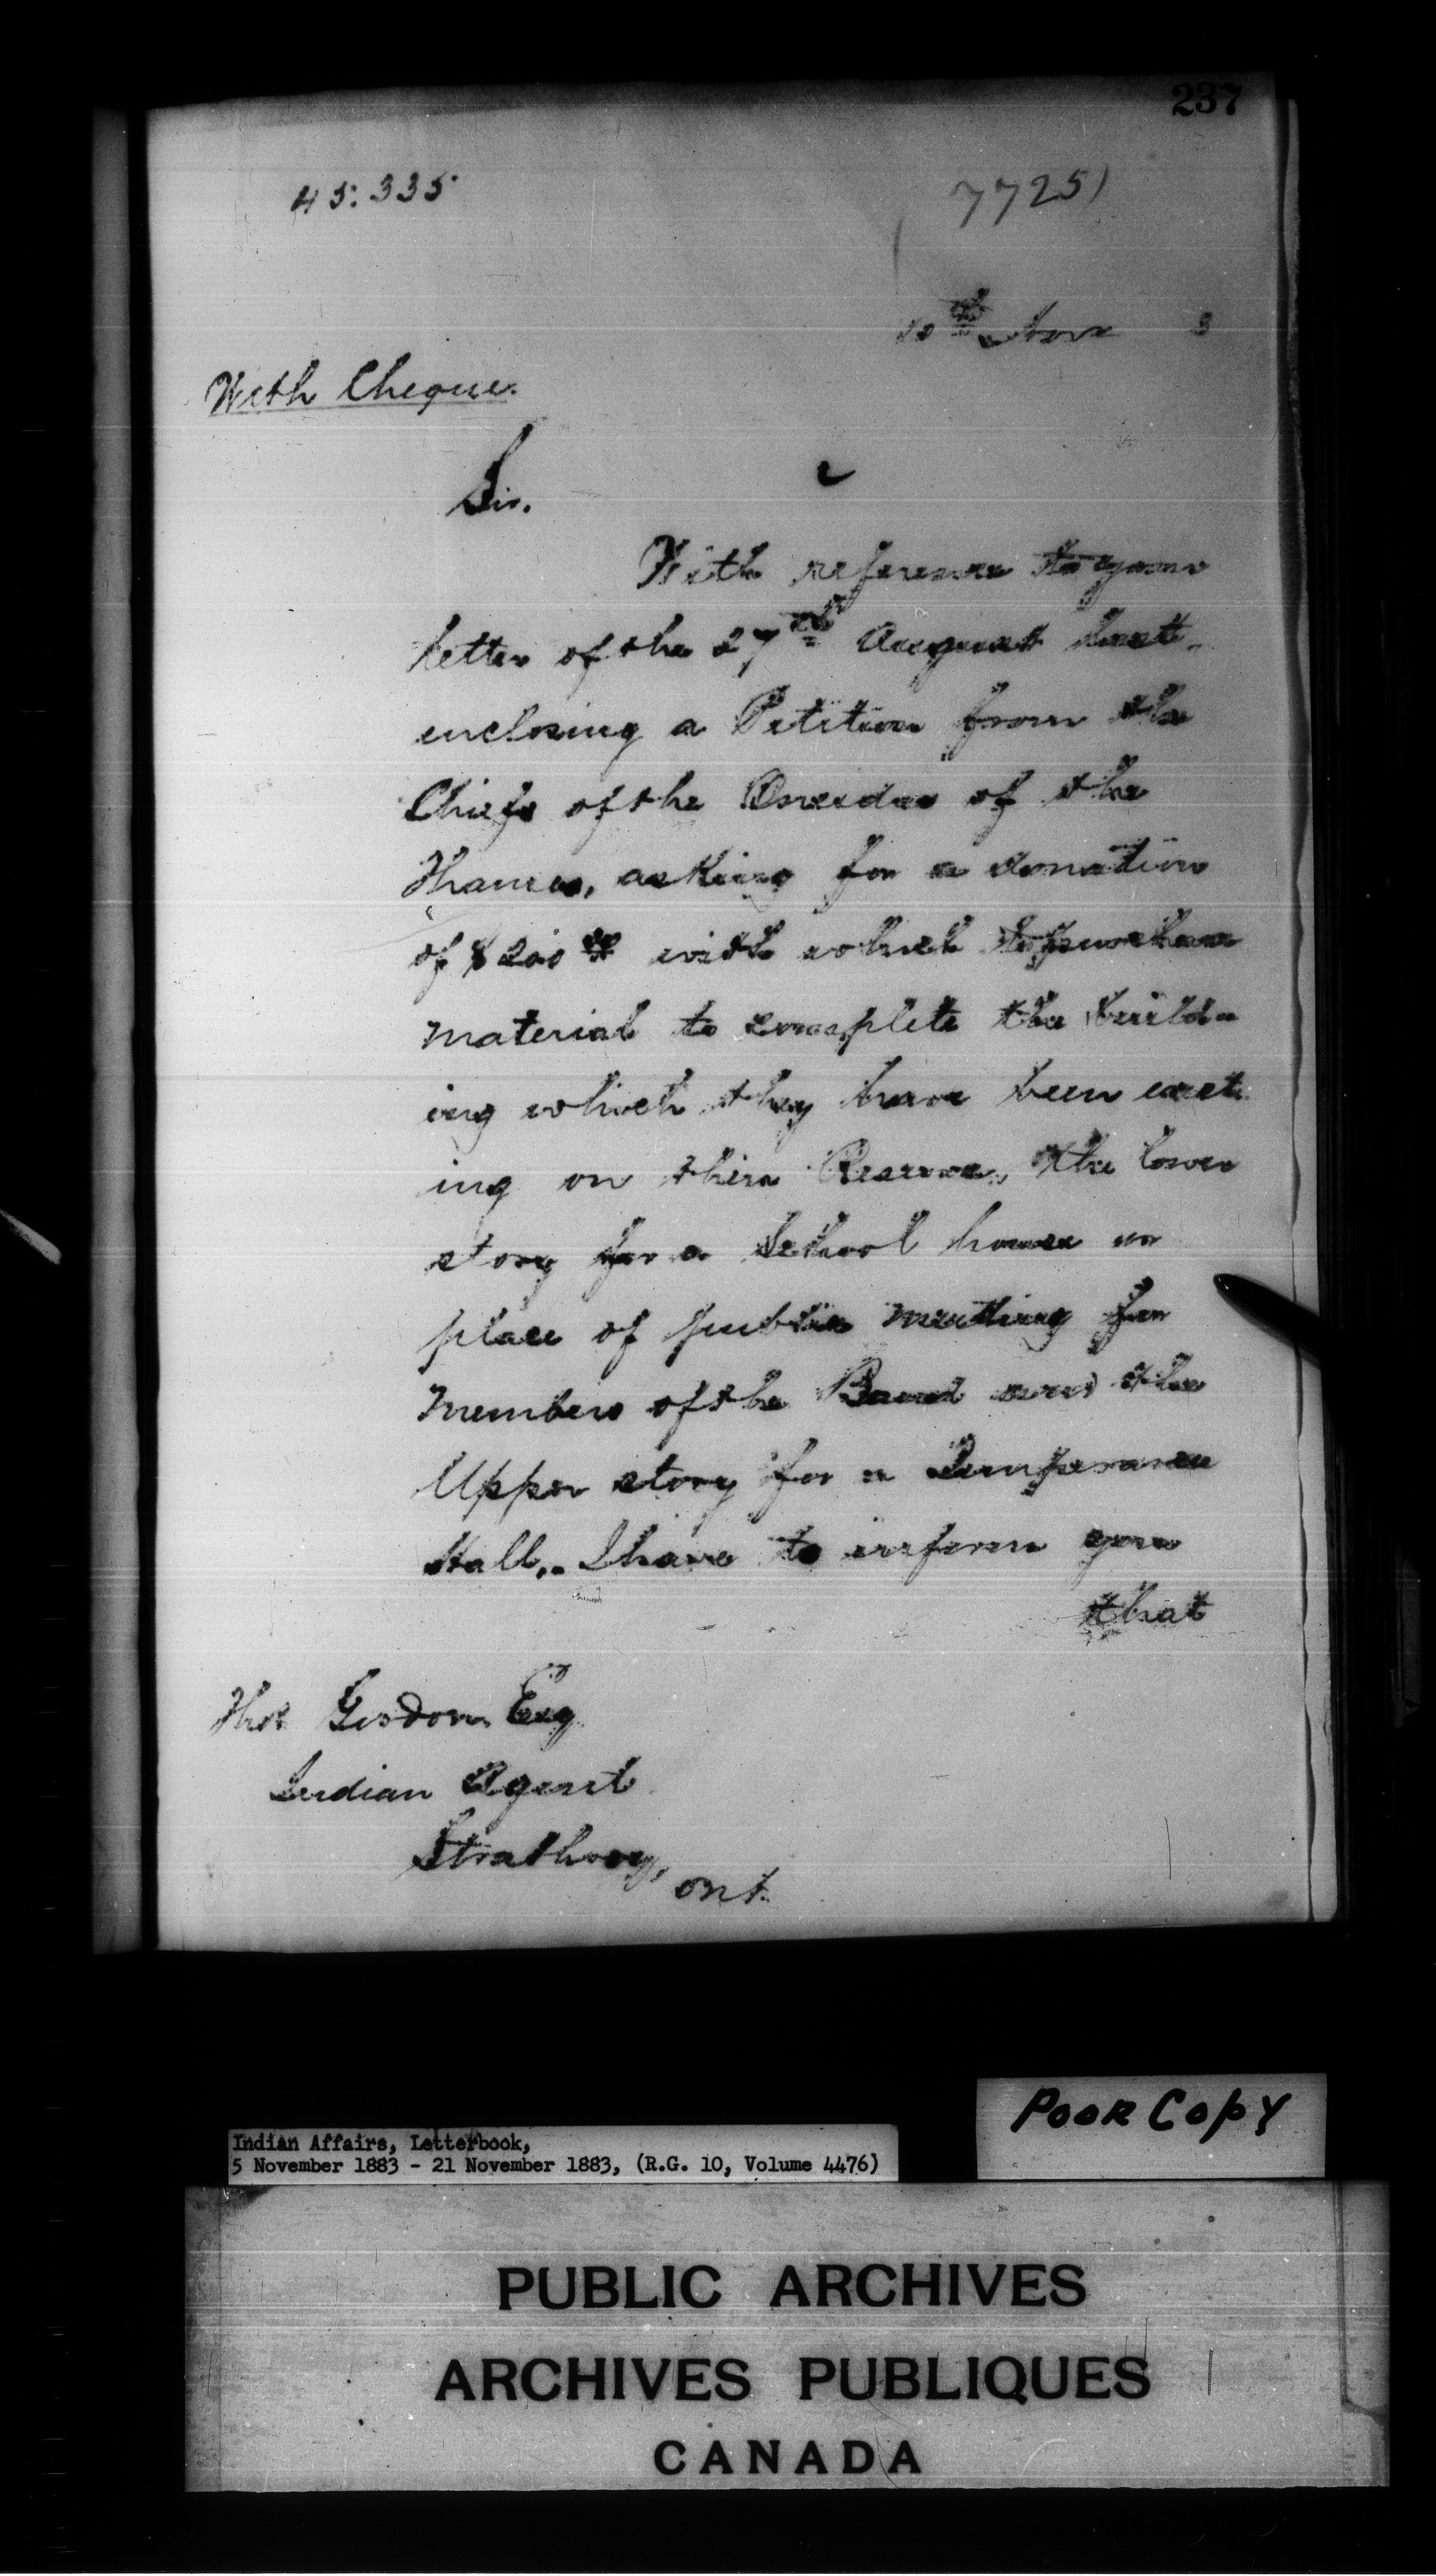 237
45.335
7725)
10th Nov 3
With Cheque.
Sir.
With reference to your
letter of the 27th August last.
enclosing a Petition from the
Chiefs of the Oneidas of the
Thames, asking for a donation
of $200 00 with which to purchase
material to complete the build-
ing which they have been erect-
ing on their Reserve, the lower
story for a School house or
place of public meeting for
Members of the Band and the
Upper story for a Temperance
Hall,. I have to inform you
that
Thos Gordon Esq
Indian Agent
Strathroy,
Ont.
Poor Copy
Indian Affairs, Letterbook,
5 November 1883 - 21 November 1883, (R.G. 10, Volume 4476)
PUBLIC ARCHIVES
ARCHIVES PUBLIQUES
CANADA